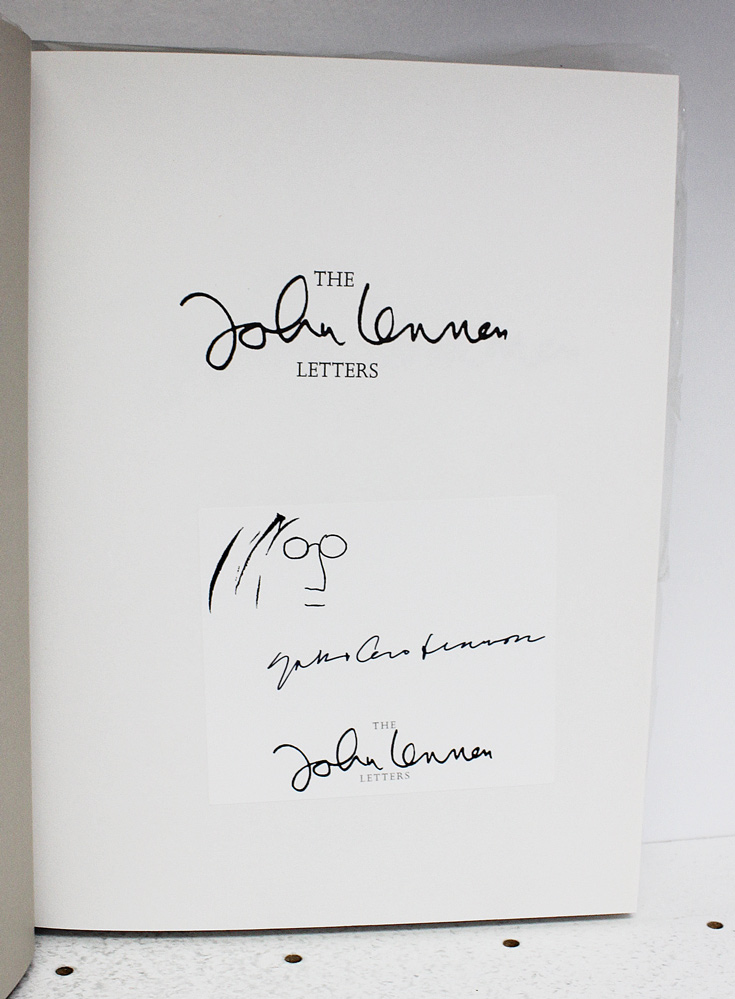 THE
John Lennon
LETTERS
Yoko Ono Lennon
THE
John Lennon
LETTERS